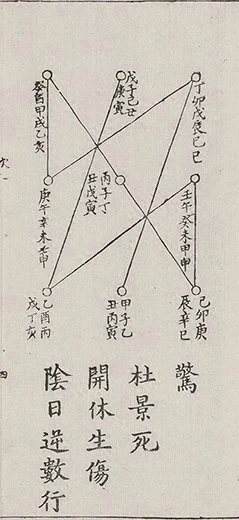 丁卯戊辰己巳
戊子己丑
庚寅
癸酉甲戌乙亥
壬午癸未甲申
丙子丁
丑戊寅
庚午辛未壬申
己卯庚
辰辛巳
甲子乙
丑丙寅
乙酉丙
戌丁亥
驚
杜景死
開休生傷
陰日逆數行
四